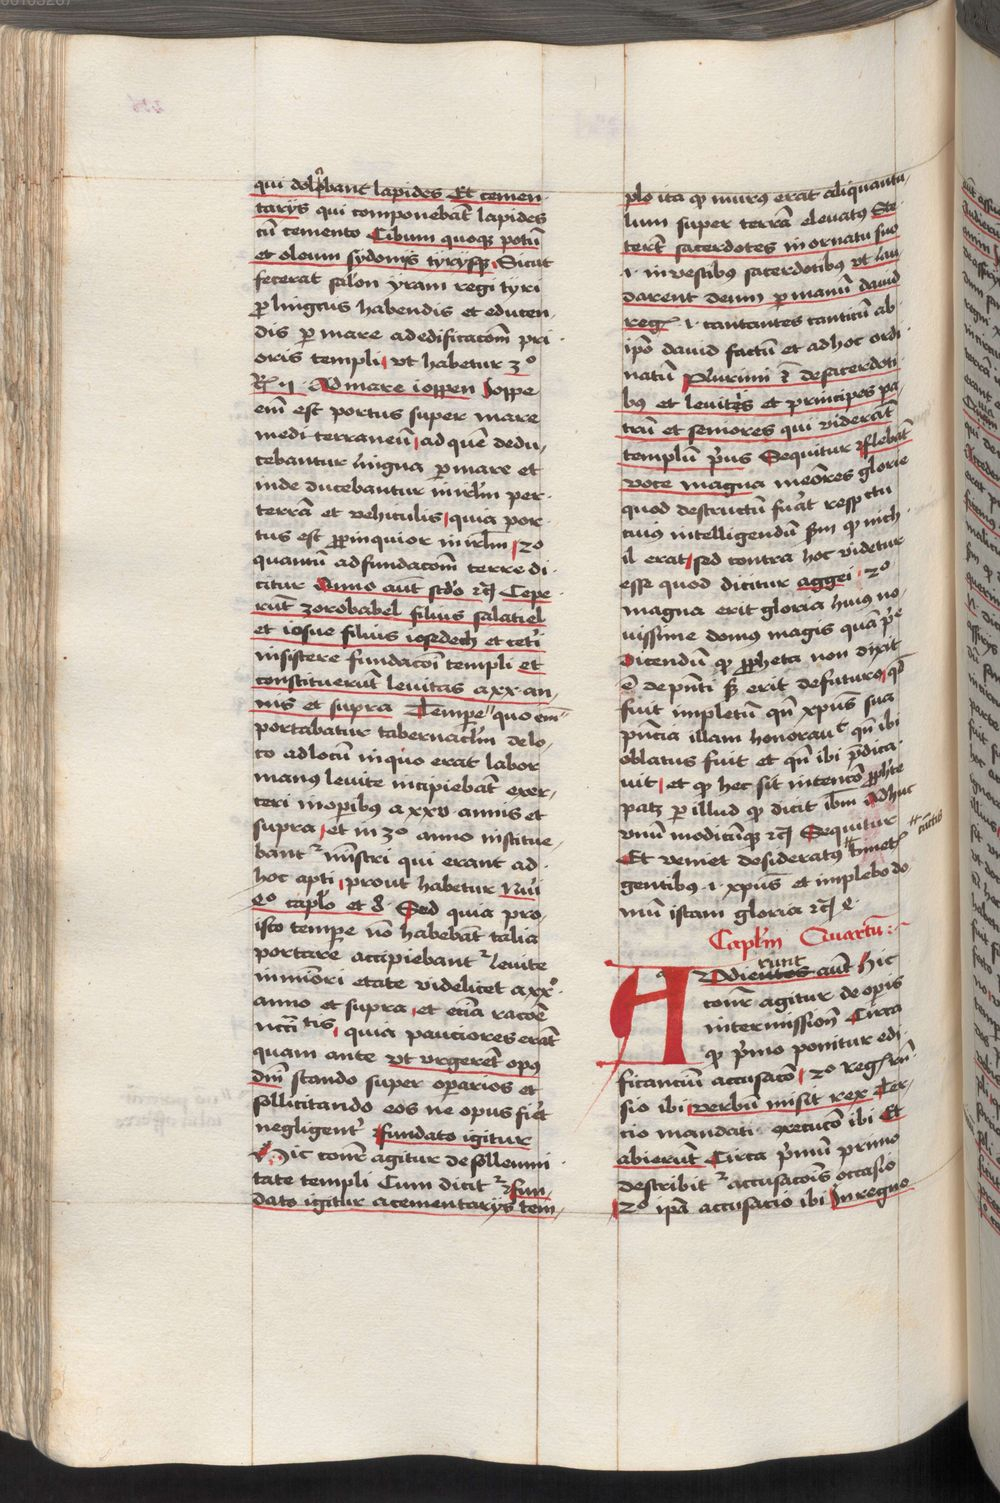 qui dolabant lapides Et cemen-
tarijs qui componebāt lapides
cū cemento Cibum quoqꝫ potū
et oleum sydonijs tyrijsqꝫ Sicut
fecerat salōn yram regi tyri
ꝑ lingnis habendis et educen
dis ꝑ mare ad edificacoēm pri
oris templi vt habetur 3º
Rꝫ 5 Ad mare ioppen Joppe
eni̅ est portus super mare
medi terraneū ad quē dedu-
cebantur lingna ꝑ mare et
inde ducebantur in irlm̄ per
terrā et vehiculis quia por
tus est ꝓpinquior in irlm̄ 2º
quantū ad fundacoēm terre di
citur Anno aut̄ scd̄o rc̄ Cepe
rūt zorobabel filius salatiel
et iosue filius iosedech et cet̄i
insistere fundacoī templi et
constituerūt leuitas a xx an
nis et supra Tempe quo em̄
portabatur tabernaclm̄ de lo-
co ad locū in quo erat labor
manus leuite incipiebāt exer-
ceri in operibꝰ a xxv annis et
supra et in 3º anno institue-
bant᷑ mīstri qui erant ad
hoc apti prout habetur Nūi
4º caplo et 8 Sed quia pro
isto tempe nō habebāt talia
portare accipiebant᷑ leuite
in miori etate videlicet a xxº
anno et supra et ecia racōe
ncc̄itatis quia pauciores erāt
quam ante vt vrgerēt opꝰ
dn̄i stando super operarios et
sollicitando eos ne opus fiēt
negligent᷑ Fundato igitur
Hic con̄r agitur de sollemni
tate templi Cum dicit᷑ Fun
dato igitur a cementarijs tem-
plo ita ꝙ murꝰ erat aliquantu-
lum super terrā eleuatꝰ Ste
terūt sacerdotes in ornatu suo
.i. in vestibꝰ sacerdotibꝰ vt lau
darent deum ꝑ manū dauid
reg᷑ .i. cantantes canticū ab
ipō dauid factū et ad hoc ordi
natū Plurimi & de sacerdoti
bꝰ et leuitis et principes pa
trū et seniores qui viderāt
templū pͥus Sequitur Flebāt
voce magna meōres glorie
quod destructū fuāt respectu
cuius intelligendū sm̄ ꝙ nich
il erat sed contra hoc videtur
esse quod dicitur aggei 2º
magna erit gloria huiꝰ no-
uissime domꝰ magis quā pͥe
Dicendū ꝙ ꝓpheta non dixit
ē de pn̄ti sꝫ erit de futuro qd̄
fuit impletū qn̄ xpūs sua
pn̄cia illam honorauͭ qn̄ ibi
oblatus fuit et qn̄ ibi p̄dica
uit et ꝙ hec sit intencō ꝓphete
patꝫ ꝑ illud ꝙ dicit ibm̄ Adhuc
vnū modicūqꝫ rc̄ Sequitur
Et veniet desideratꝰ cūctis
gentibꝰ .i. xpūs et implebo do
mū istam gloria rc̄
Caplm̄ Quartū
Audierunt aut̄ hic
con̄r agitur de opis
intermissionē Circa
ꝙ pͥmo ponitur edi
ficancium accusacō 2º reg᷑ rn̄
sio ibi verbū misit rex Ter-
cio mandati execucō ibi Et
abierūt Circa pͥmū primo
describit᷑ accusacoīs occasio
2º ipā accusacio ibi In regno